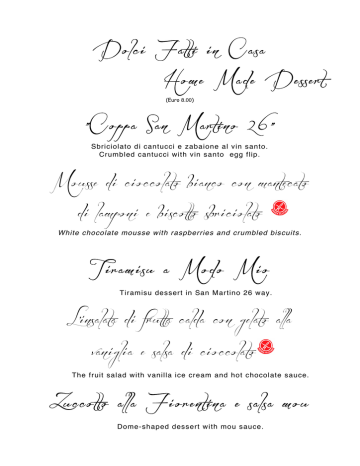 Dolci Fatti in Casa
Home Made Dessert
(Euro 8.00)
"Coppa San Martino 26"
Sbriciolato di cantucci e zabaione al vin santo.
Crumbled cantucci with vin santo egg flip.
Mousse di cioccolato bianco con mantecato
di lamponi e biscotto sbriciolato
White chocolate mousse with raspberries and crumbled biscuits.
Tiramisu a Modo Mio
Tiramisu dessert in San Martino 26 way.
L'insalata di frutta calda con gelato alla
vaniglia e salsa di cioccolato
The fruit salad with vanilla ice cream and hot chocolate sauce.
Zuccotto alla Fiorentina e salsa mou
Dome-shaped dessert with mou sauce.